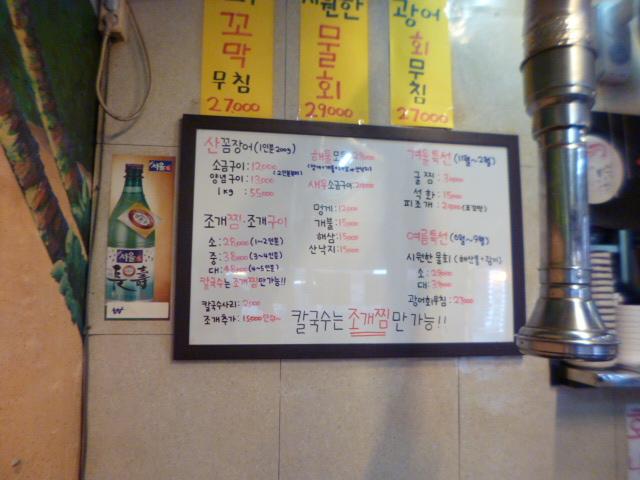 꼬막
무침
27,000
시원한
물회
29000
광어
회
무침
27,000
산꼼장어(1인분200g)
소금구이:12,000
양념구이:13,000
1kg : 55,000
조개찜·조개구이
소:28,000 (1~2인분)
중:38,000 (3~4인분)
대:48,000 (4~5인분)
칼국수는 조개찜만가능!!
칼국수사리:2,000
조개추가:15000
해물모둠
새우소금구이:
멍게:12000
개불:15000
해삼:15000
산낙지:15000
겨울특선 (11월~2월)
굴찜:
석화:15000
피조개:
여름특선 (6월~9월)
시원한물회
소:
대:
광어회무침:27000
칼국수는 조개찜만 가능!!
서울
서울